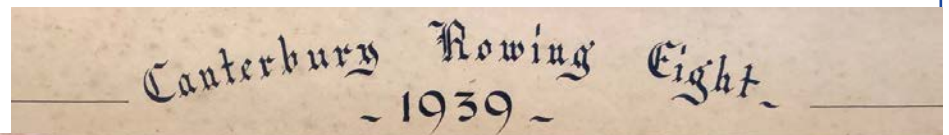 Canterbury Rowing Eight_
- 1939 -